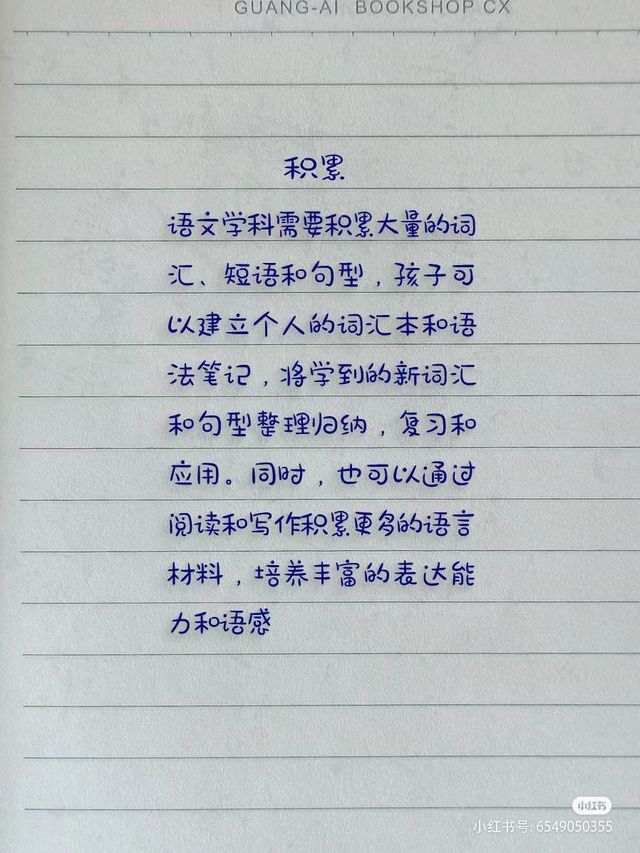 GUANG-AI BOOKSHOP CX
积累
语文学科需要积累大量的词
汇、短语和句型，孩子可
以建立个人的词汇本和语
法笔记，将学到的新词汇
和句型整理归纳，复习和
应用。同时，也可以通过
阅读和写作积累更多的语言
材料，培养丰富的表达能
力和语感
小红书
小红书号: 6549050355